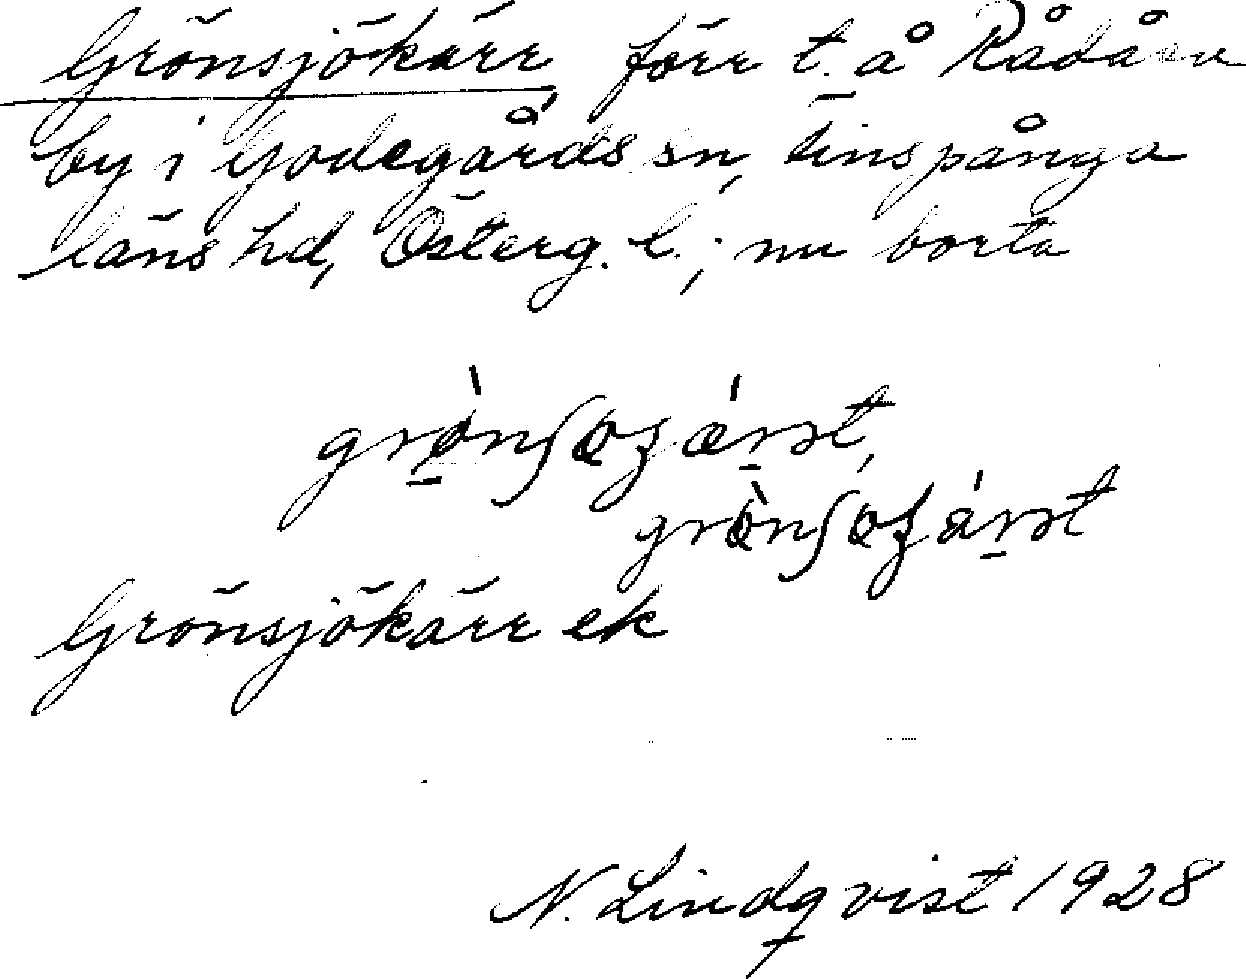 Grönsjökärr, förr t. å Rådåsa
by i Godegårds sn, Finspånga
läns hd, Österg. l.; nu borta
Grönsjökärr ek
N. Lindqvist 1928